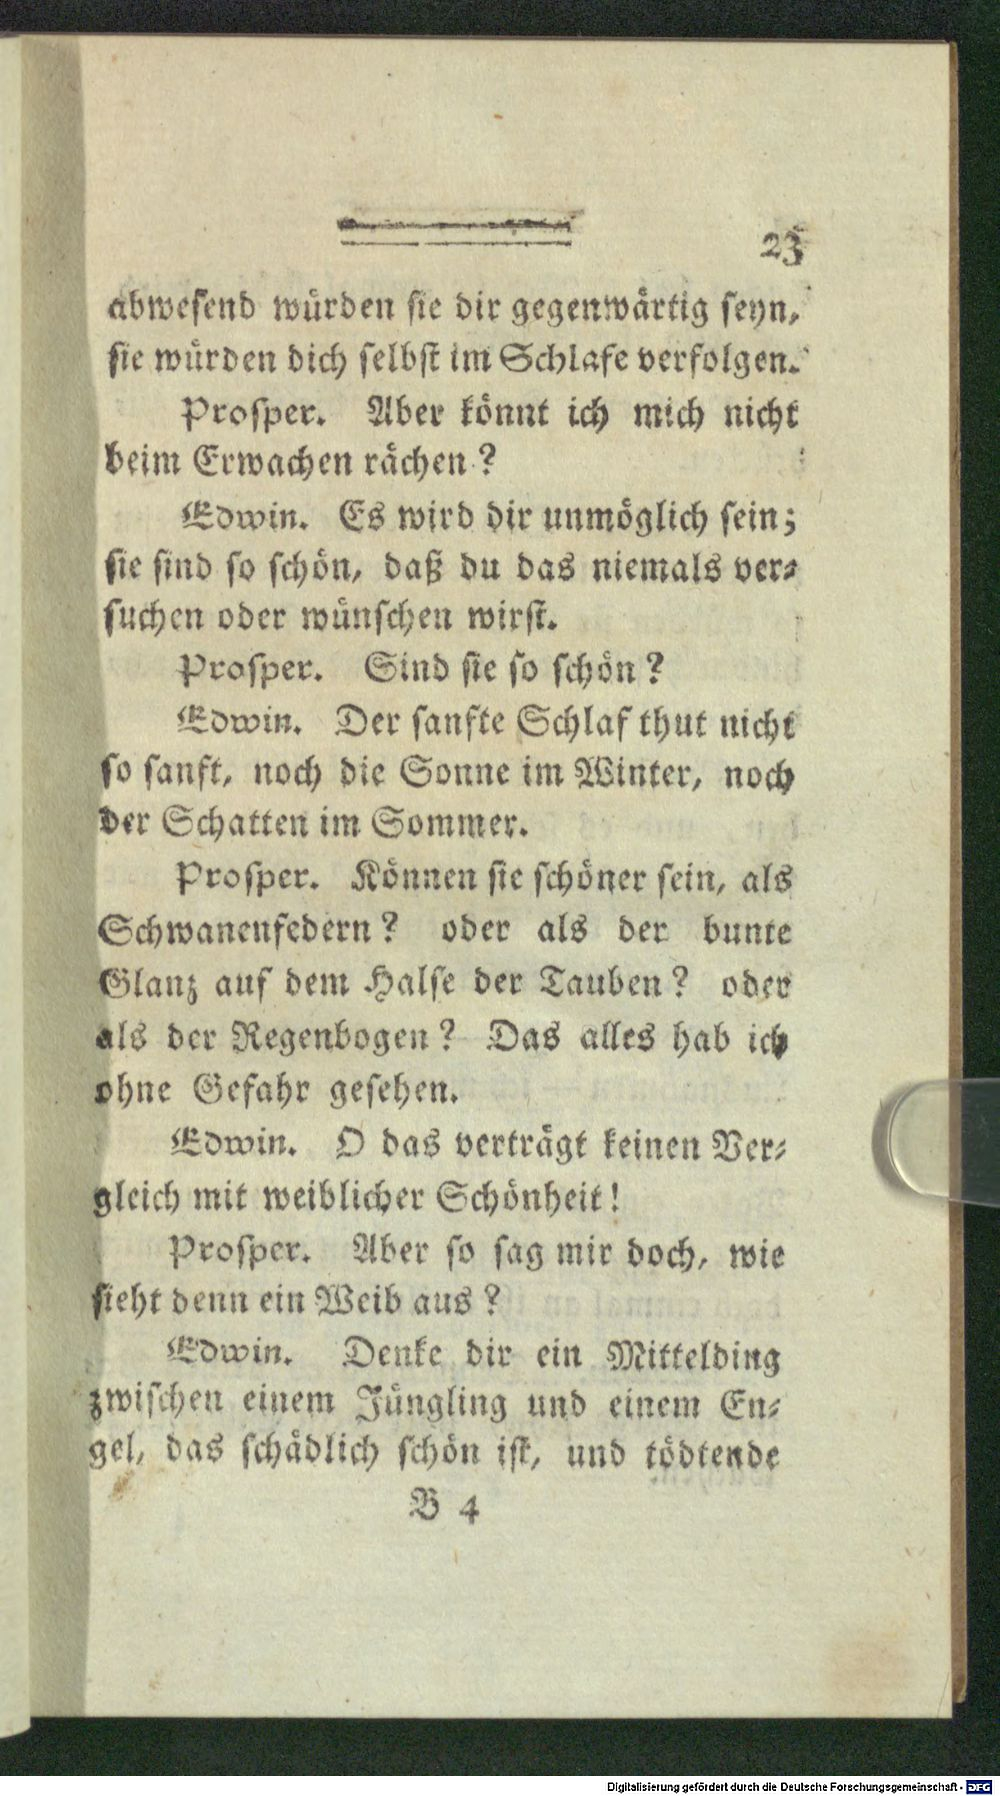 23
abwesend würden sie dir gegenwärtig seyn,
sie würden dich selbst im Schlafe verfolgen.
Prosper. Aber könnt ich mich nicht
beim Erwachen rächen?
Edwin. Es wird dir unmöglich sein;
sie sind so schön, daß du das niemals ver-
suchen oder wünschen wirst.
Prosper. Sind sie so schön?
Edwin. Der sanfte Schlaf thut nicht
so sanft, noch die Sonne im Winter, noch
der Schatten im Sommer.
Prosper. Können sie schöner sein, als
Schwanenfedern? oder als der bunte
Glanz auf dem Halse der Tauben? oder
als der Regenbogen? Das alles hab ich
ohne Gefahr gesehen.
Edwin. O das verträgt keinen Ver-
gleich mit weiblicher Schönheit!
Prosper. Aber so sag mir doch, wie
sieht denn ein Weib aus?
Edwin. Denke dir ein Mittelding
zwischen einem Jüngling und einem En-
gel, das schädlich schön ist, und tödtende
B 4
Digitalisierung gefördert durch die Deutsche Forschungsgemeinschaft - DFG